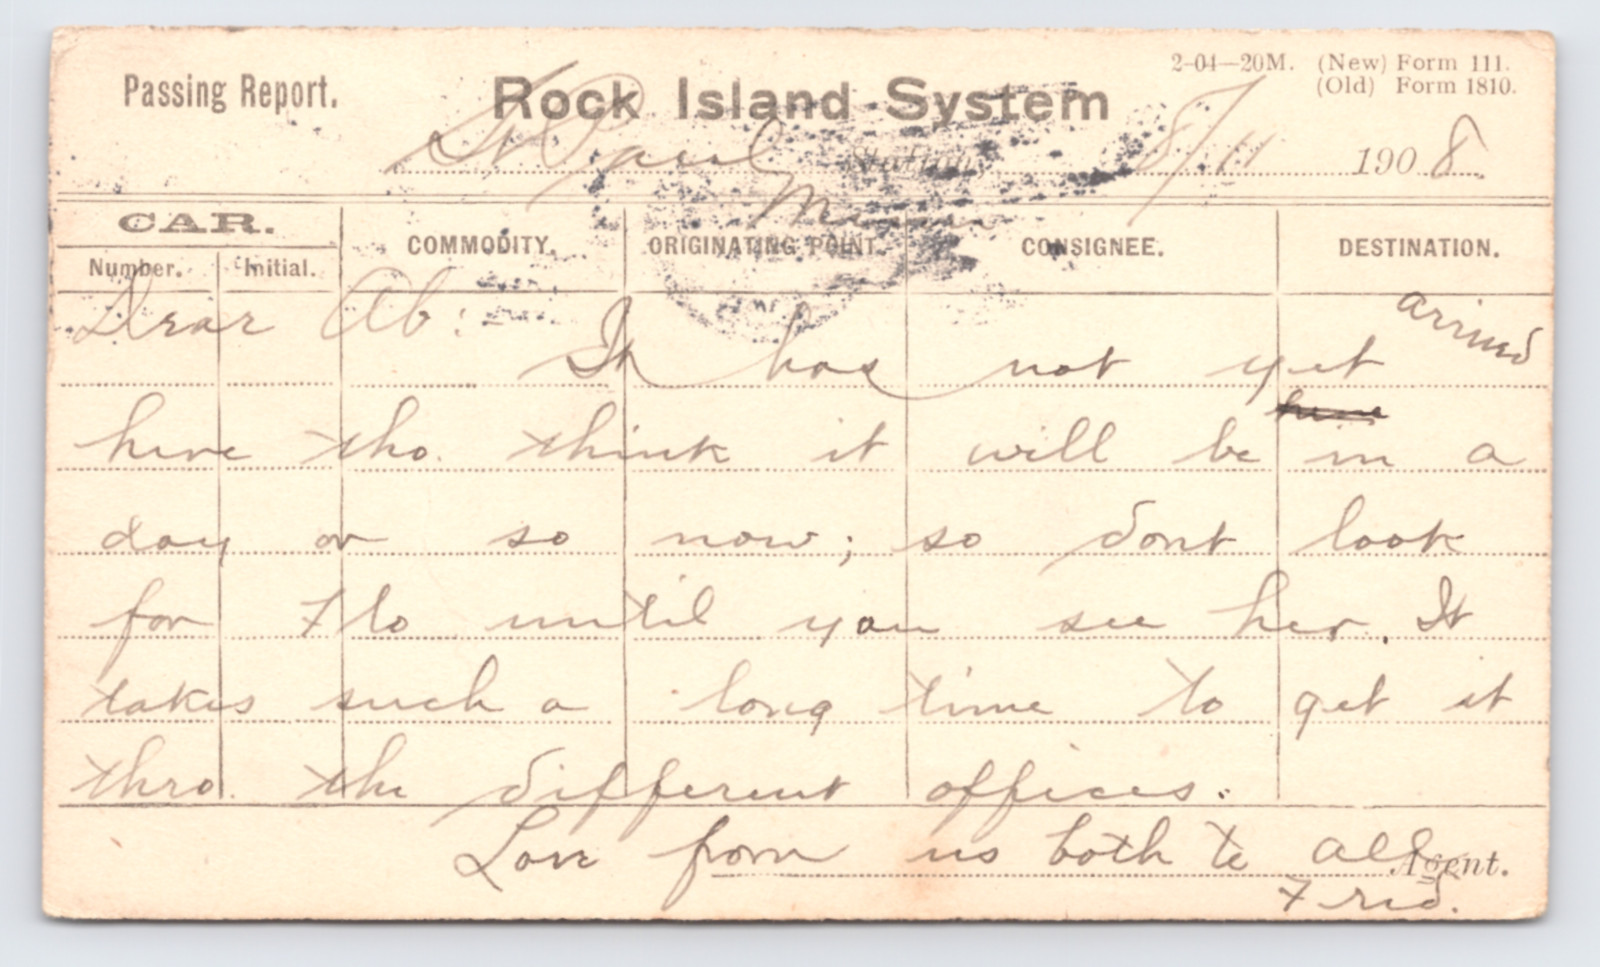 Passing Report.
Rock Island System
2-04-20M. (New) Form 111.
(Old) Form 1810.
St Paul Station, 8/11 1908
Minn
CAR.
Number. Initial.
COMMODITY.
ORIGINATING POINT.
CONSIGNEE.
DESTINATION.
Dear Ab:
It has not yet arrived
here tho. think it will be in a
day or so now; so dont look
for Flo until you see her. It
takes such a long time to get it
thro. the different offices.
Love from us both to all
Agent.
Fred.